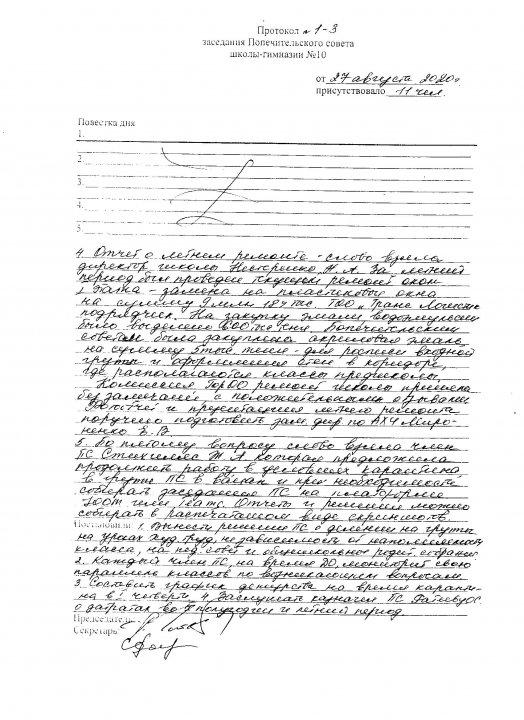 Протокол № 1-3
заседания Попечительского совета
школы-гимназии №10
от 27 августа 2020г
присутствовало 11 чел.
Повестка дня
1.
2.
3.
4.
5.
4. Отчет о летнем ремонте - слово взяла
директор школы Нестеренко Н. А. За летний
период был проведен текущий ремонт окон
- замена на пластиковые окна
на сумму 9 млн 187 тыс. ТОО
подрядчик. На закупку эмали водоэмульсии
было выделено 600 тысяч. Попечительским
советом была закуплена акриловая эмаль
на сумму тенге - для росписи входной
группы и оформления стен в коридоре,
где располагаются классы предшколы.
Комиссия ГорОО ремонт школы приняла
без замечаний, с положительными отзывами
отчет и презентацию летнего ремонта
поручено подготовить зам. дир по АХЧ Миро-
ненко Е. В.
5. По пятому вопросу слово взяла член
ПС Т. А. которая предложила
продолжить работу в условиях карантина
в группе ПС в и при необходимости
собирать заседания ПС на платформе
ZOOM или Teams. Отчеты и решения можно
собирать в распечатанном виде скриншотов.
Постановили: 1. Вынести решение ПС о делении на группы
на уроках худ. труд, независимости от наполняемости
класса, на пед. совет и общешкольное родит. собрание
2. Каждый член ПС, на время ДО, мониторит свою
параллель классов по возникающим вопросам.
3. Составить график дежурства на время каранти-
на в I четверти. 4. Заслушать казначея ПС
о затратах во II полугодии и летний период.
Председатель:
Секретарь